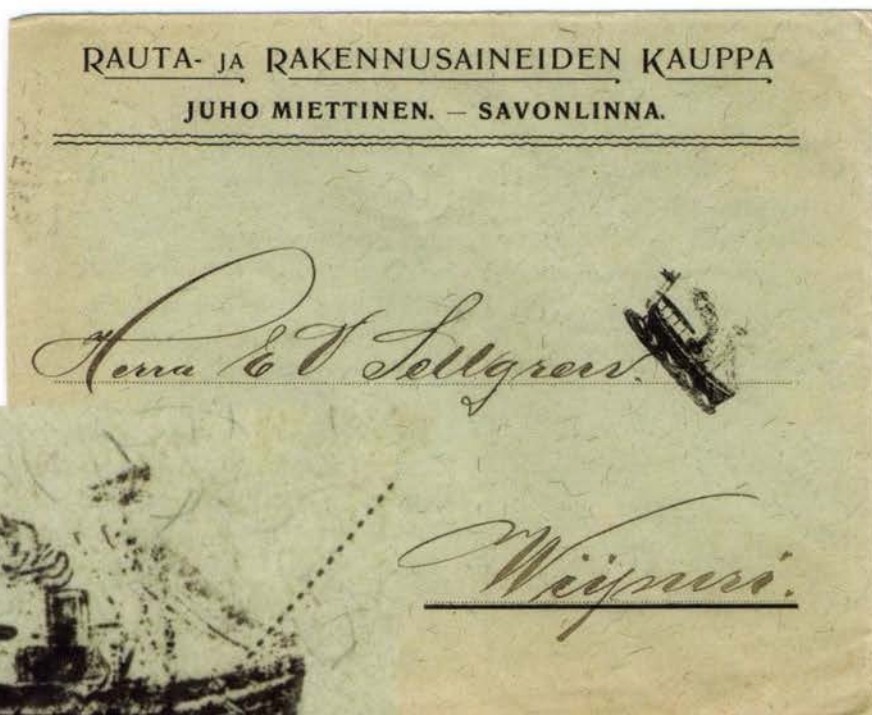 RAUTA- JA RAKENNUSAINEIDEN KAUPPA
JUHO MIETTINEN. — SAVONLINNA.
Herra E V Sellgren.
Wiipuri.